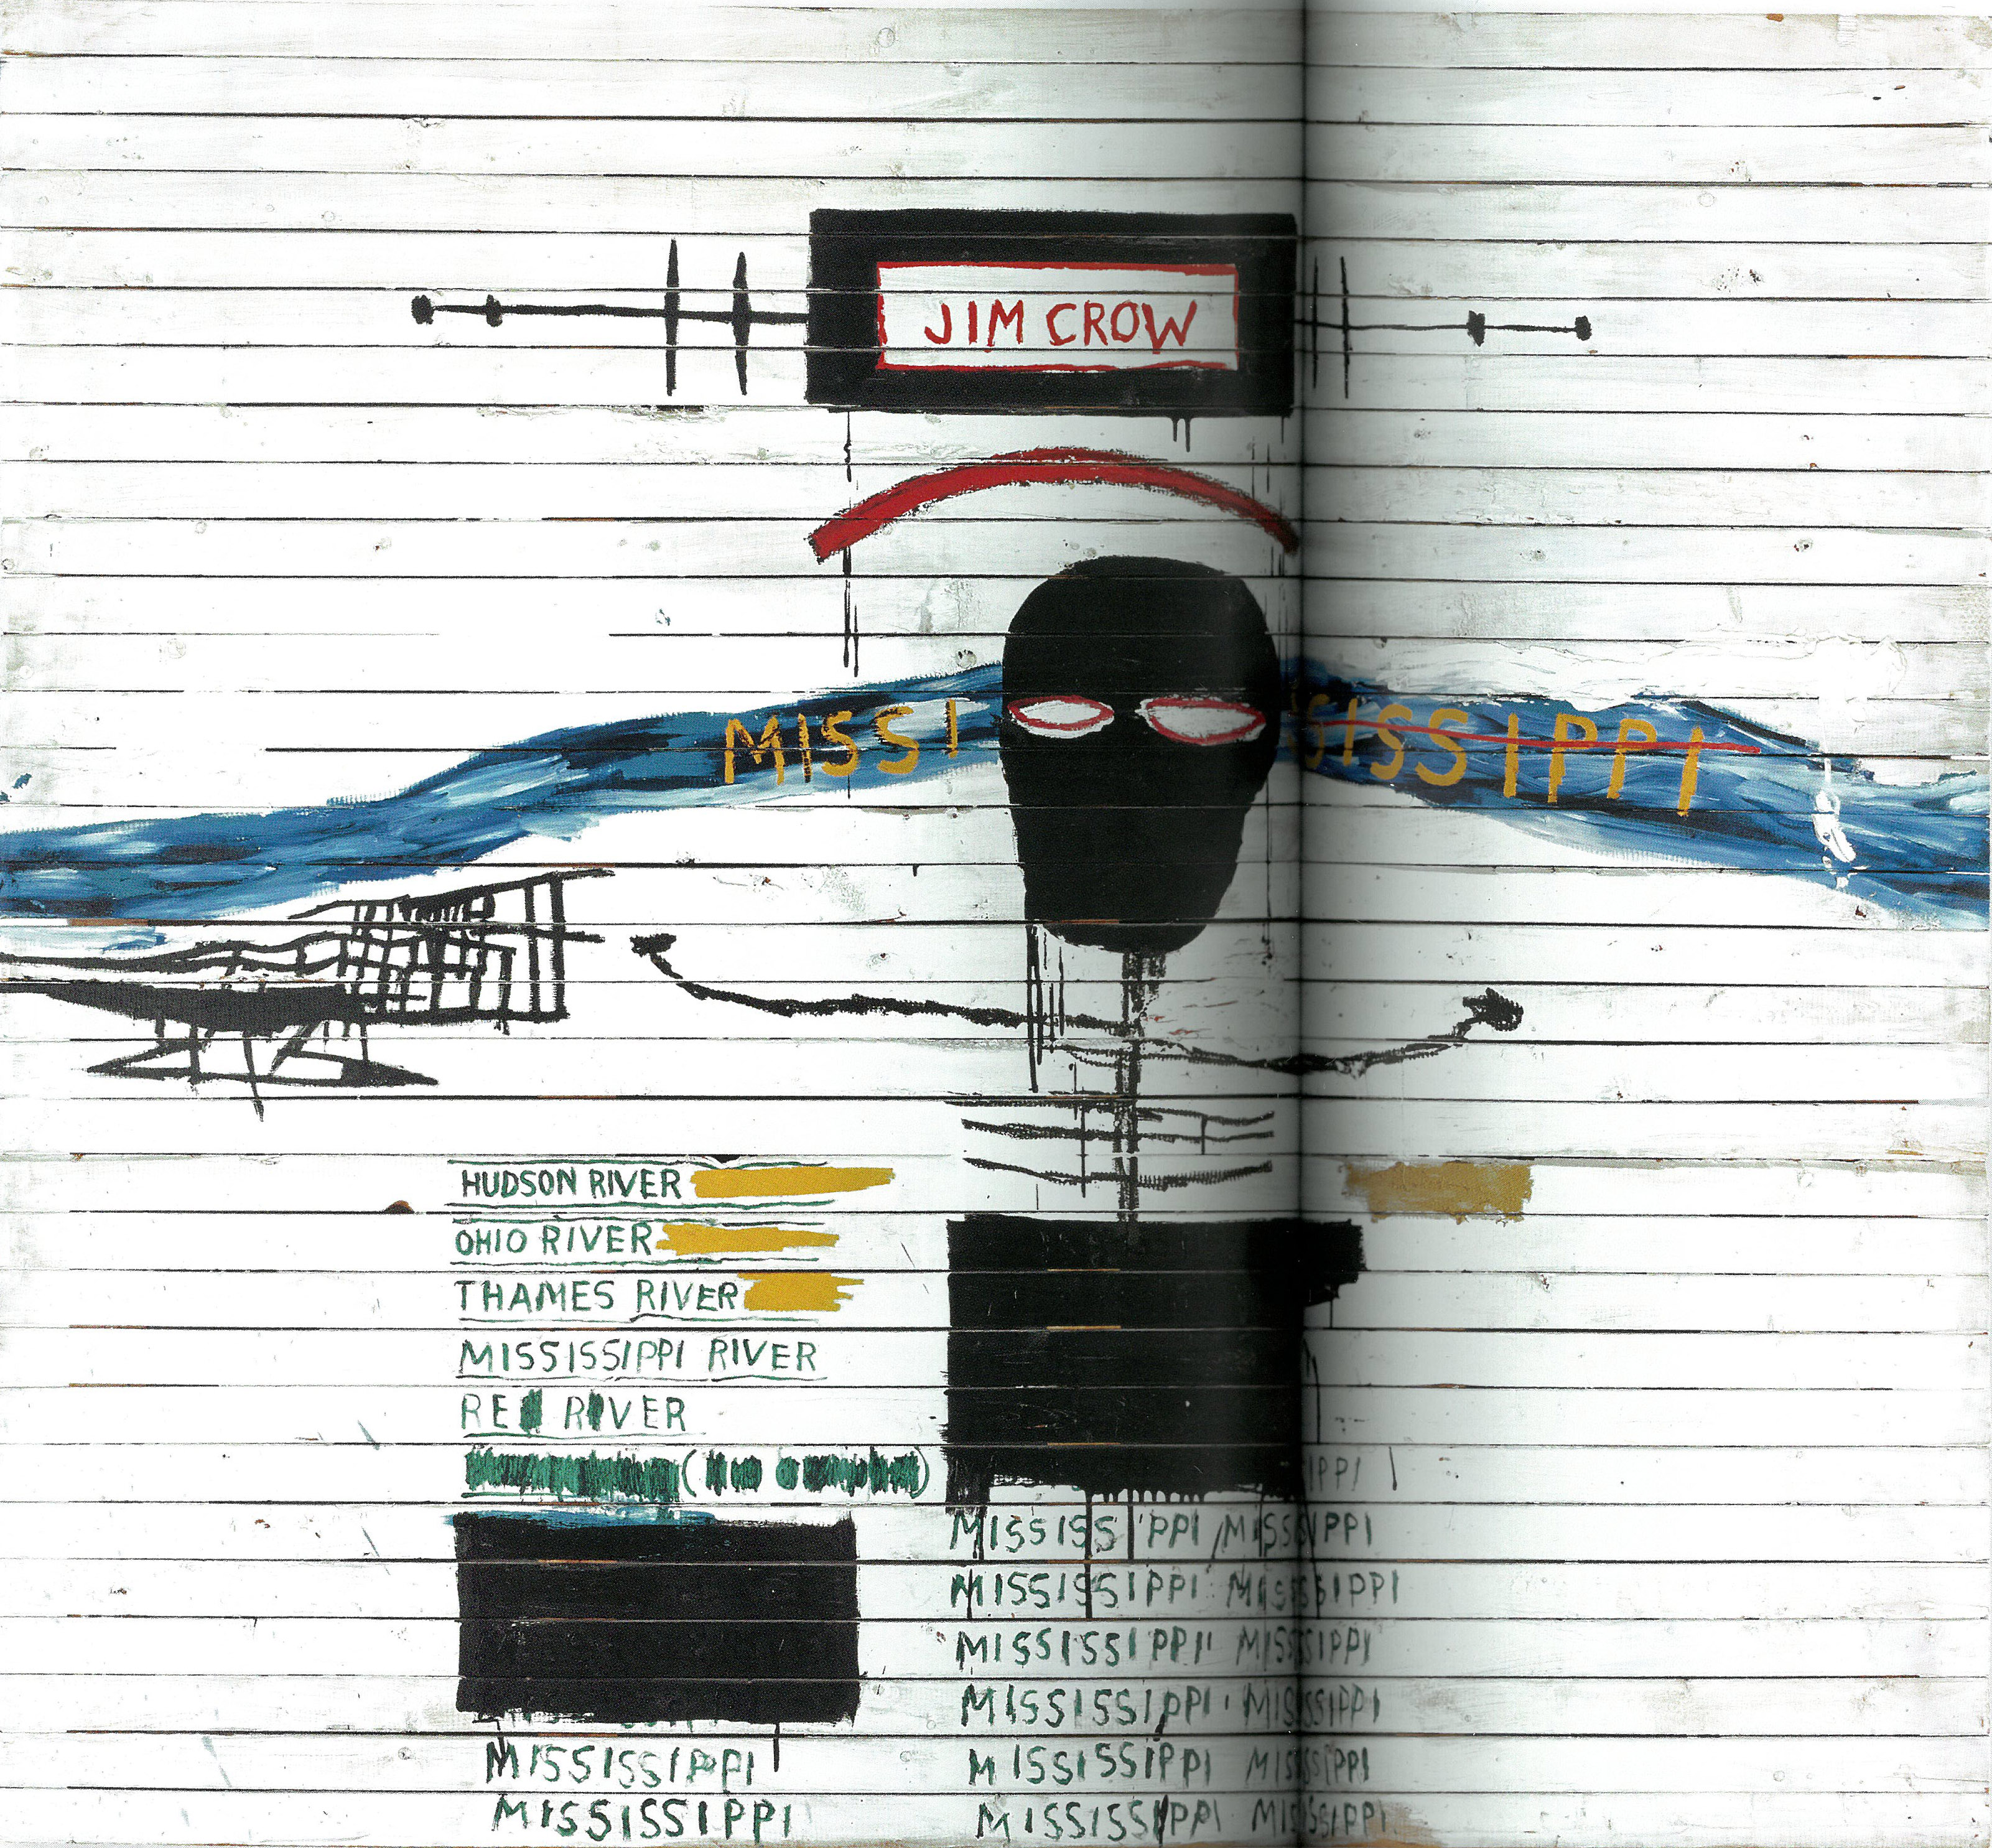 JIM CROW
MISSI SISSIPPI
HUDSON RIVER
OHIO RIVER
THAMES RIVER
MISSISSIPPI RIVER
RIVER
IPPI
MISSISSIPPI MISSISSIPPI
MISSISSIPPI MISSISSIPPI
MISSISSIPPI MISSISSIPPI
MISSISSIPPI MISSISSIPPI
MISSISSIPPI MISSISSIPPI MISSISSIPPI
MISSISSIPPI MISSISSIPPI MISSISSIPPI